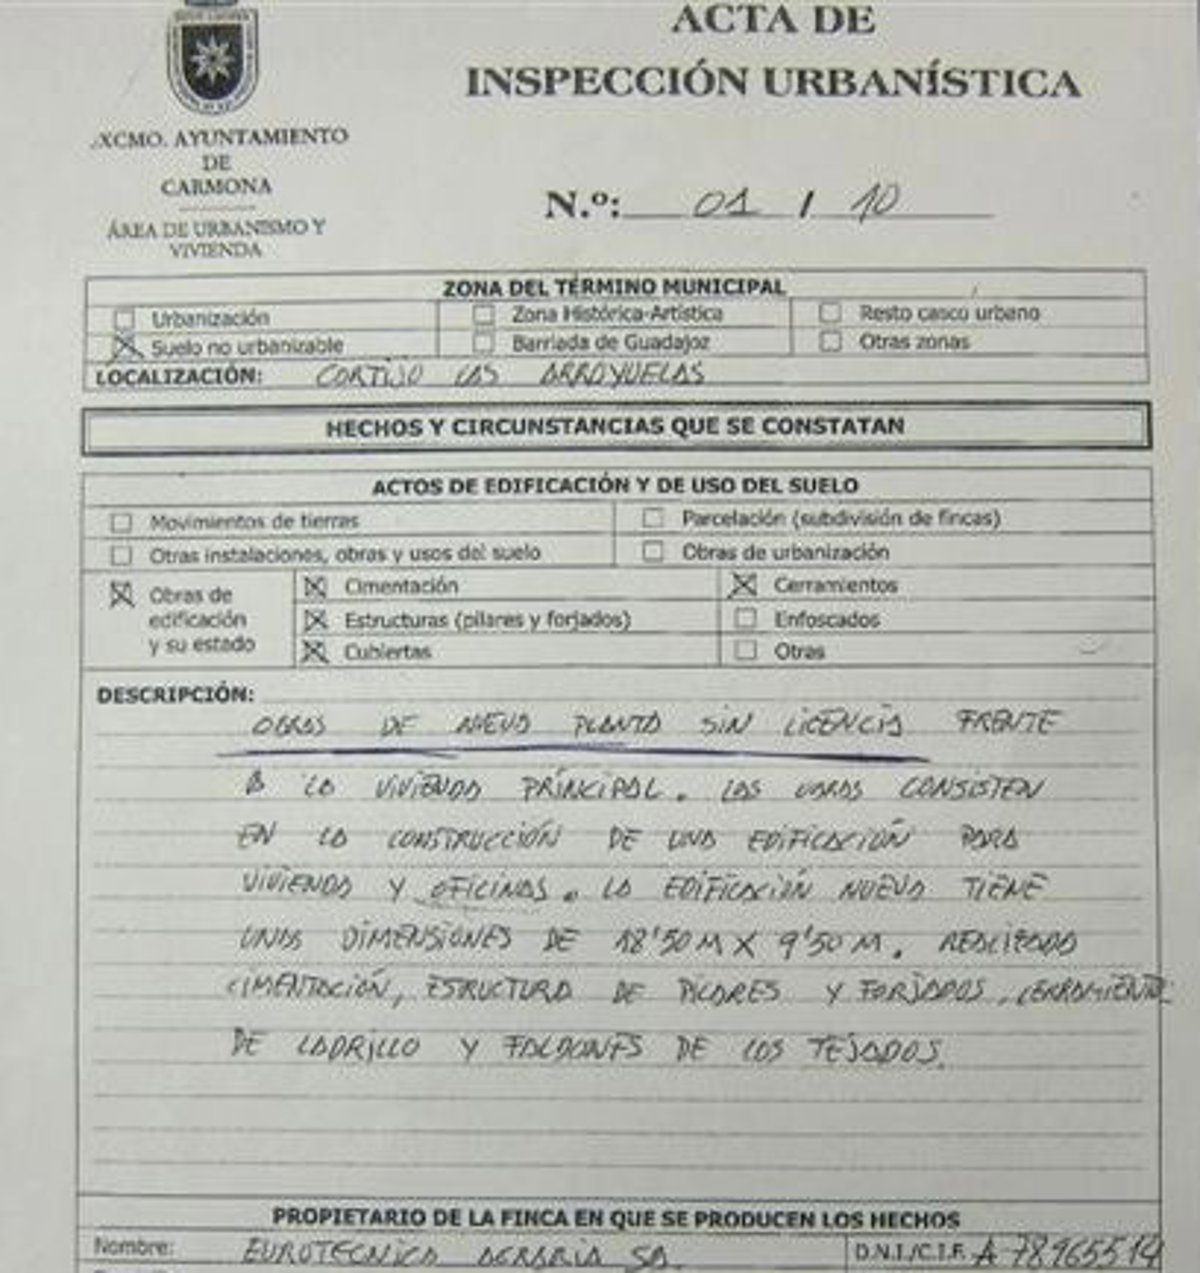 ACTA DE
INSPECCIÓN URBANÍSTICA
.XCMO. AYUNTAMIENTO
DE
CARMONA
ÁREA DE URBANISMO Y
VIVIENDA
N.º: 01 / 10
ZONA DEL TÉRMINO MUNICIPAL
Urbanización Zona Histórica-Artística Resto casco urbano
Suelo no urbanizable Barriada de Guadajoz Otras zonas
LOCALIZACIÓN: CORTIJO LAS ARROYUELAS
HECHOS Y CIRCUNSTANCIAS QUE SE CONSTATAN
ACTOS DE EDIFICACIÓN Y DE USO DEL SUELO
Movimientos de tierras Parcelación (subdivisión de fincas)
Otras instalaciones, obras y usos del suelo Obras de urbanización
Obras de edificación y su estado
Cimentación Cerramientos
Estructuras (pilares y forjados) Enfoscados
Cubiertas Otras
DESCRIPCIÓN:
OBRAS DE NUEVA PLANTA SIN LICENCIA FRENTE
A LA VIVIENDA PRINCIPAL. LAS OBRAS CONSISTEN
EN LA CONSTRUCCIÓN DE UNA EDIFICACIÓN PARA
VIVIENDA Y OFICINAS. LA EDIFICACIÓN NUEVA TIENE
UNAS DIMENSIONES DE 18'50 M X 9'50 M. REALIZADA
CIMENTACIÓN, ESTRUCTURA DE PILARES Y FORJADOS, CERRAMIENTO
DE LADRILLO Y FALDONES DE LOS TEJADOS.
PROPIETARIO DE LA FINCA EN QUE SE PRODUCEN LOS HECHOS
Nombre: EUROTECNICA AGRARIA SA. D.N.I./C.I.F. A 78965514